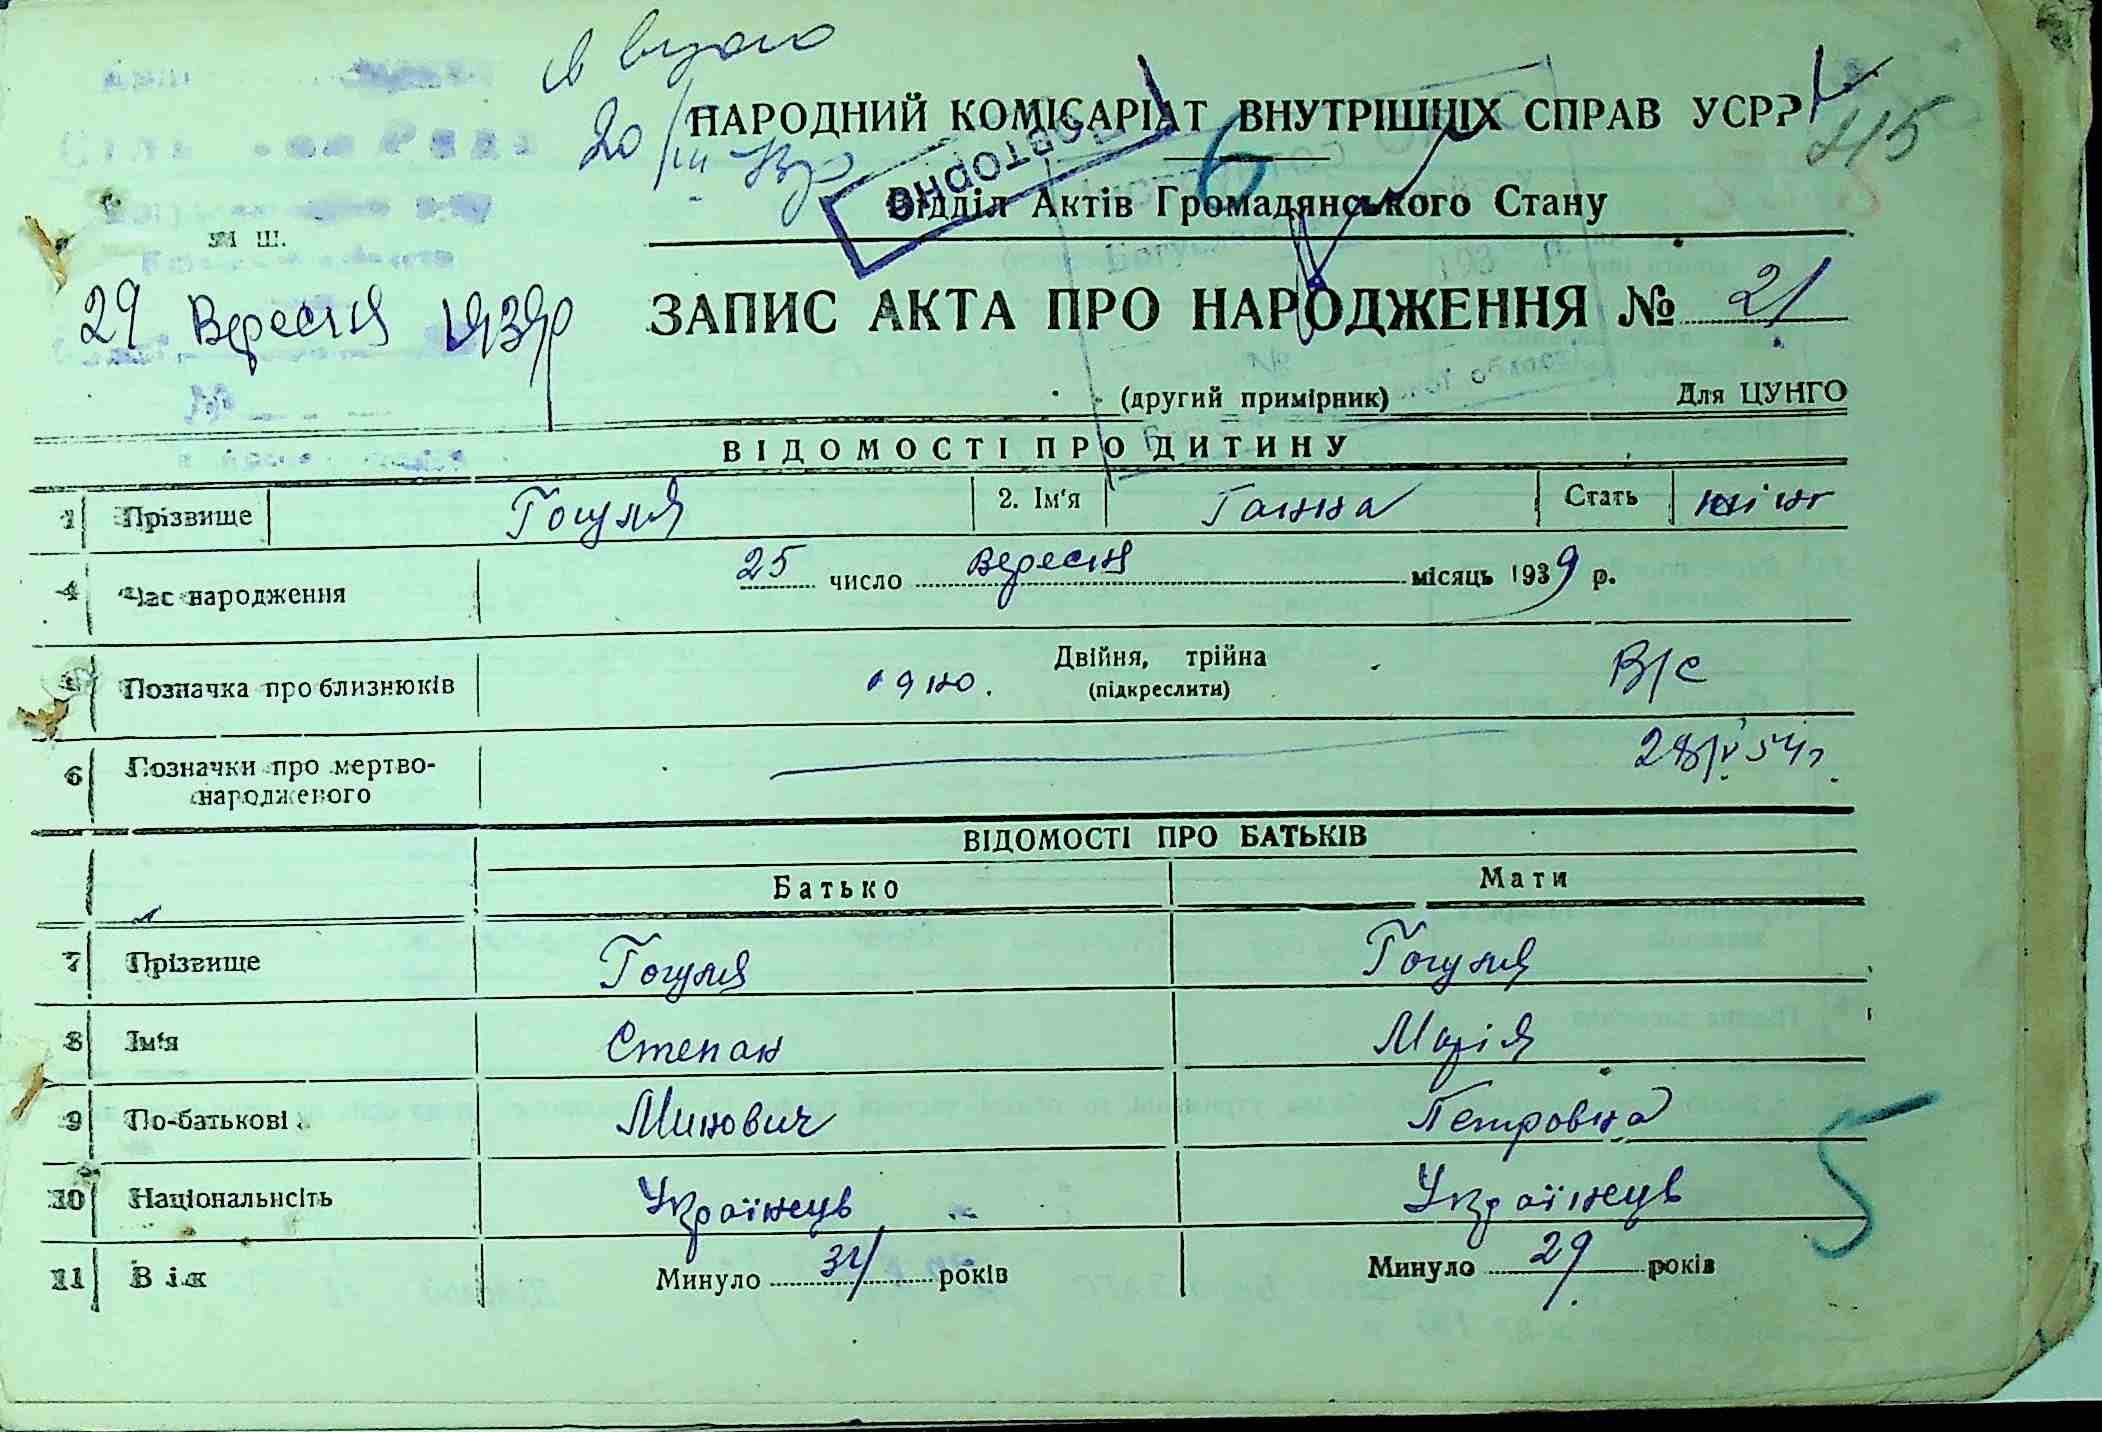 20/III
НАРОДНИЙ КОМІСАРІАТ ВНУТРІШНІХ СПРАВ УСРР
415
ПОВТОРНЕ
6
Відділ Актів Громадянського Стану
29 Вересня 1939р
ЗАПИС АКТА ПРО НАРОДЖЕННЯ № 21
(другий примірник) Для ЦУНГО
ВІДОМОСТІ ПРО ДИТИНУ
1 Прізвище Гогуля 2. Ім'я Ганна Стать жін
4 Час народження 25 число вересня місяць 1939 р.
5 Позначка про близнюків одно. Двійня, трійна В/с
(підкреслити)
6 Позначки про мертво-
народженого 28/V 54г.
ВІДОМОСТІ ПРО БАТЬКІВ
Батько Мати
7 Прізвище Гогуля Гогуля
8 Ім'я Степан Марія
9 По-батькові Минович Петровна
10 Національність Українець Українець
5
11 Вік Минуло 34 років Минуло 29 років